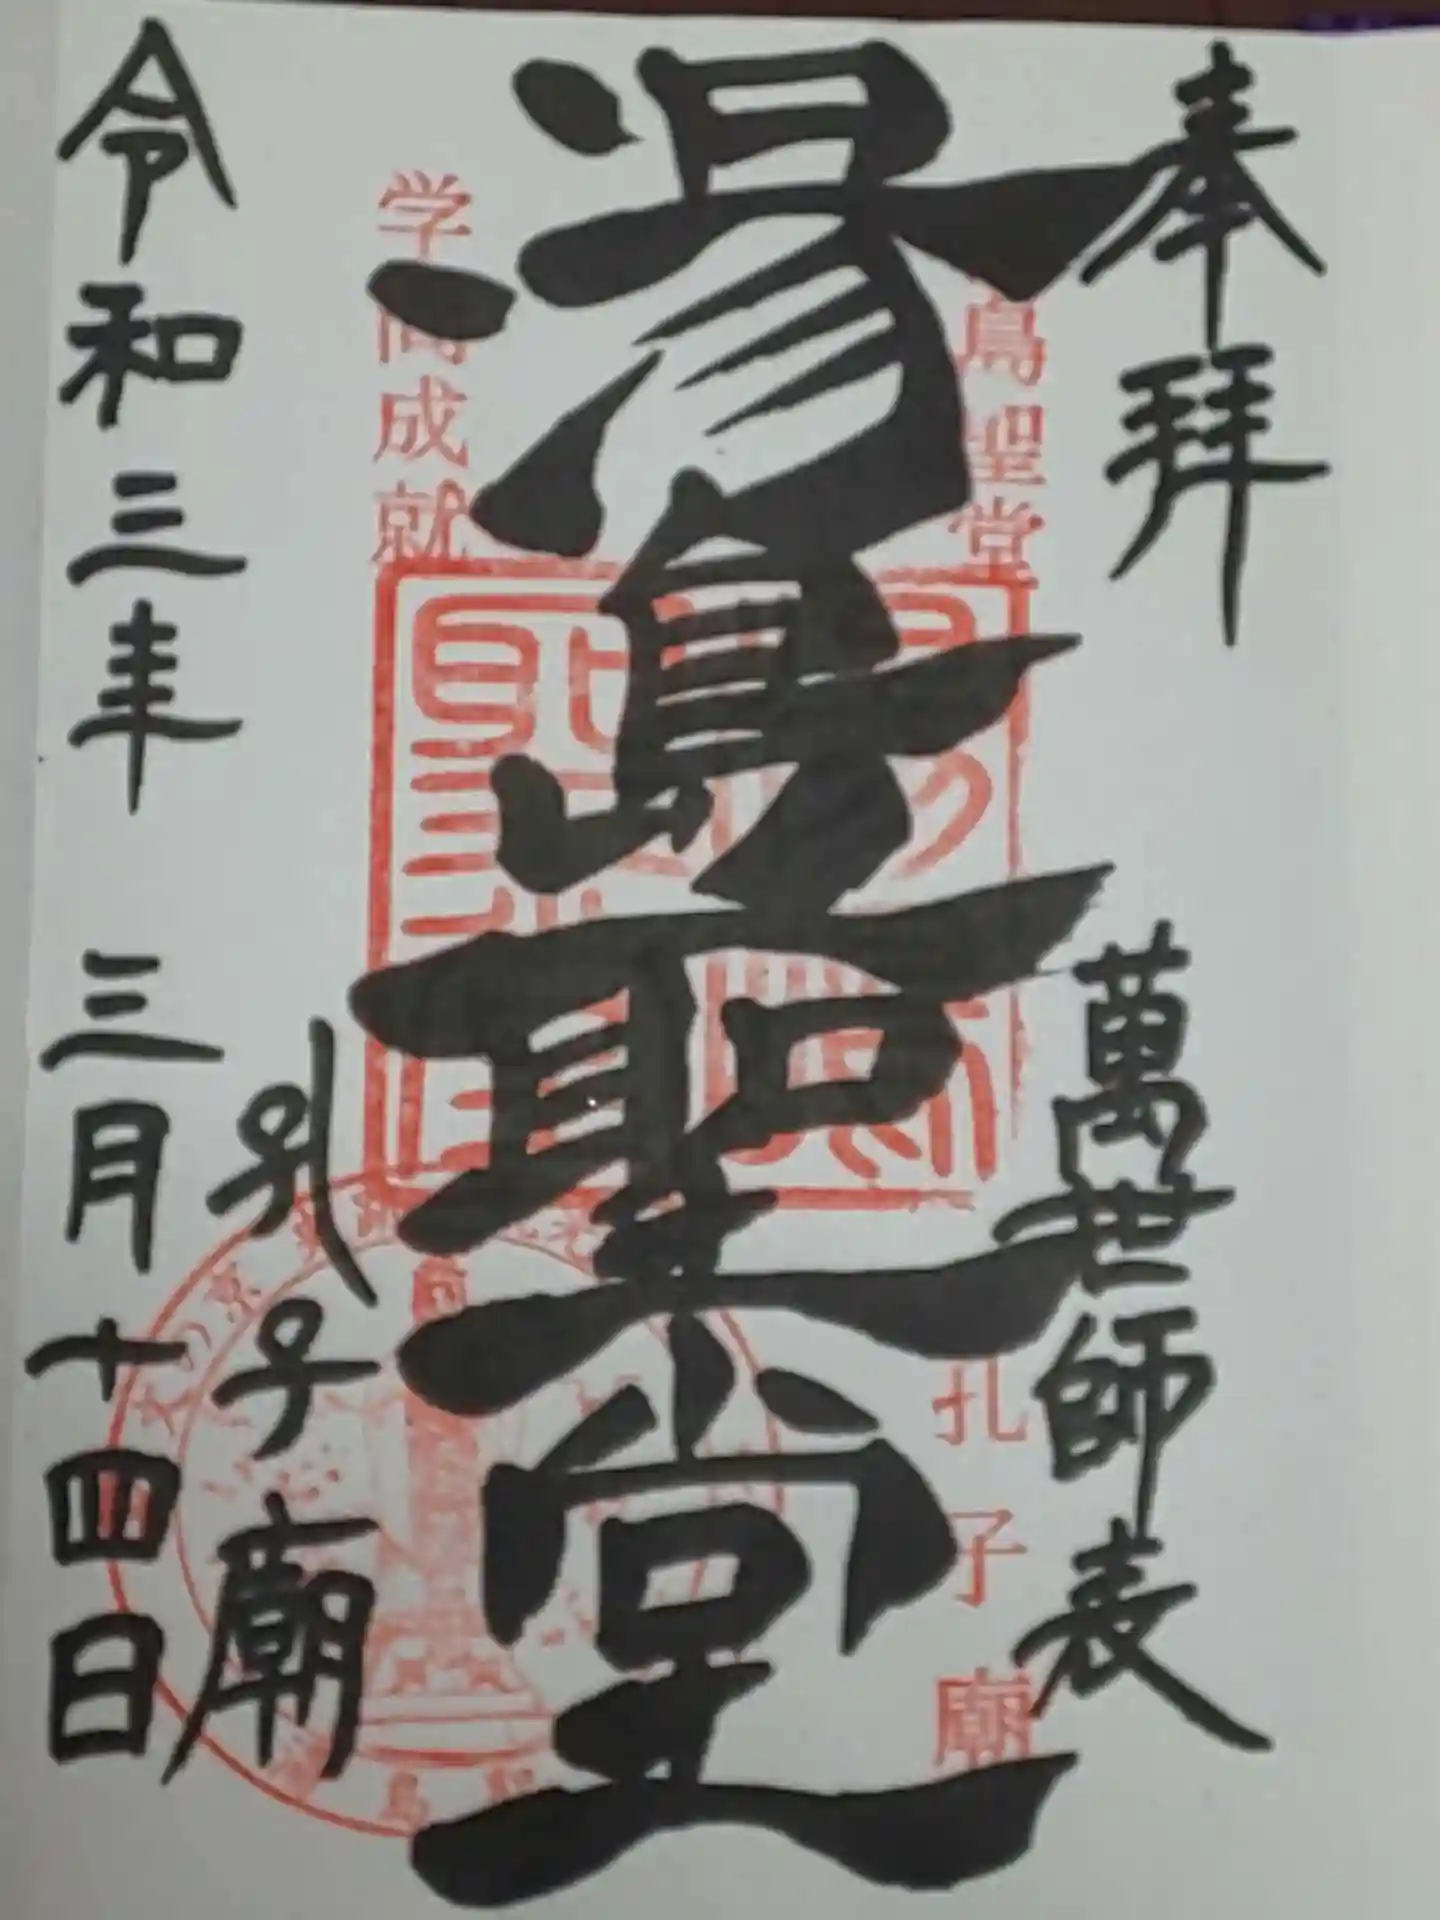 奉拝
萬世師表
島聖堂
孔子廟
湯島聖堂
学問成就
孔子廟
令和三年 三月十四日